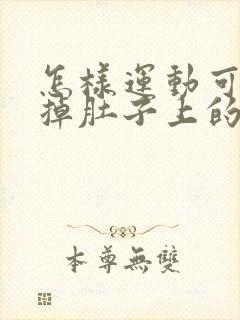 怎樣運動可
掉肚子上的
本尊無雙